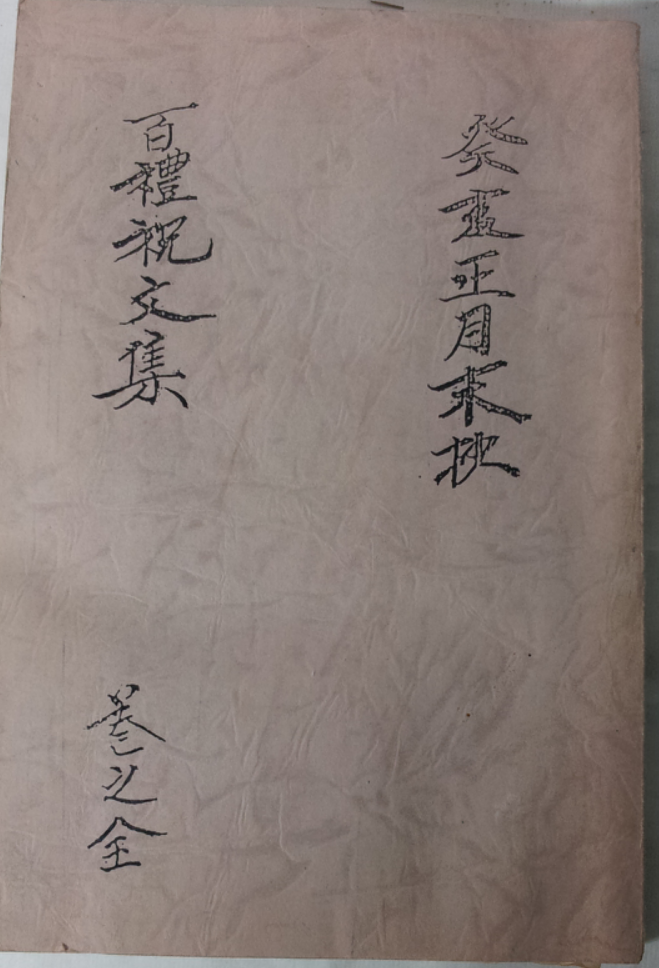 癸亥正月末抄
百禮祝文集
卷之全